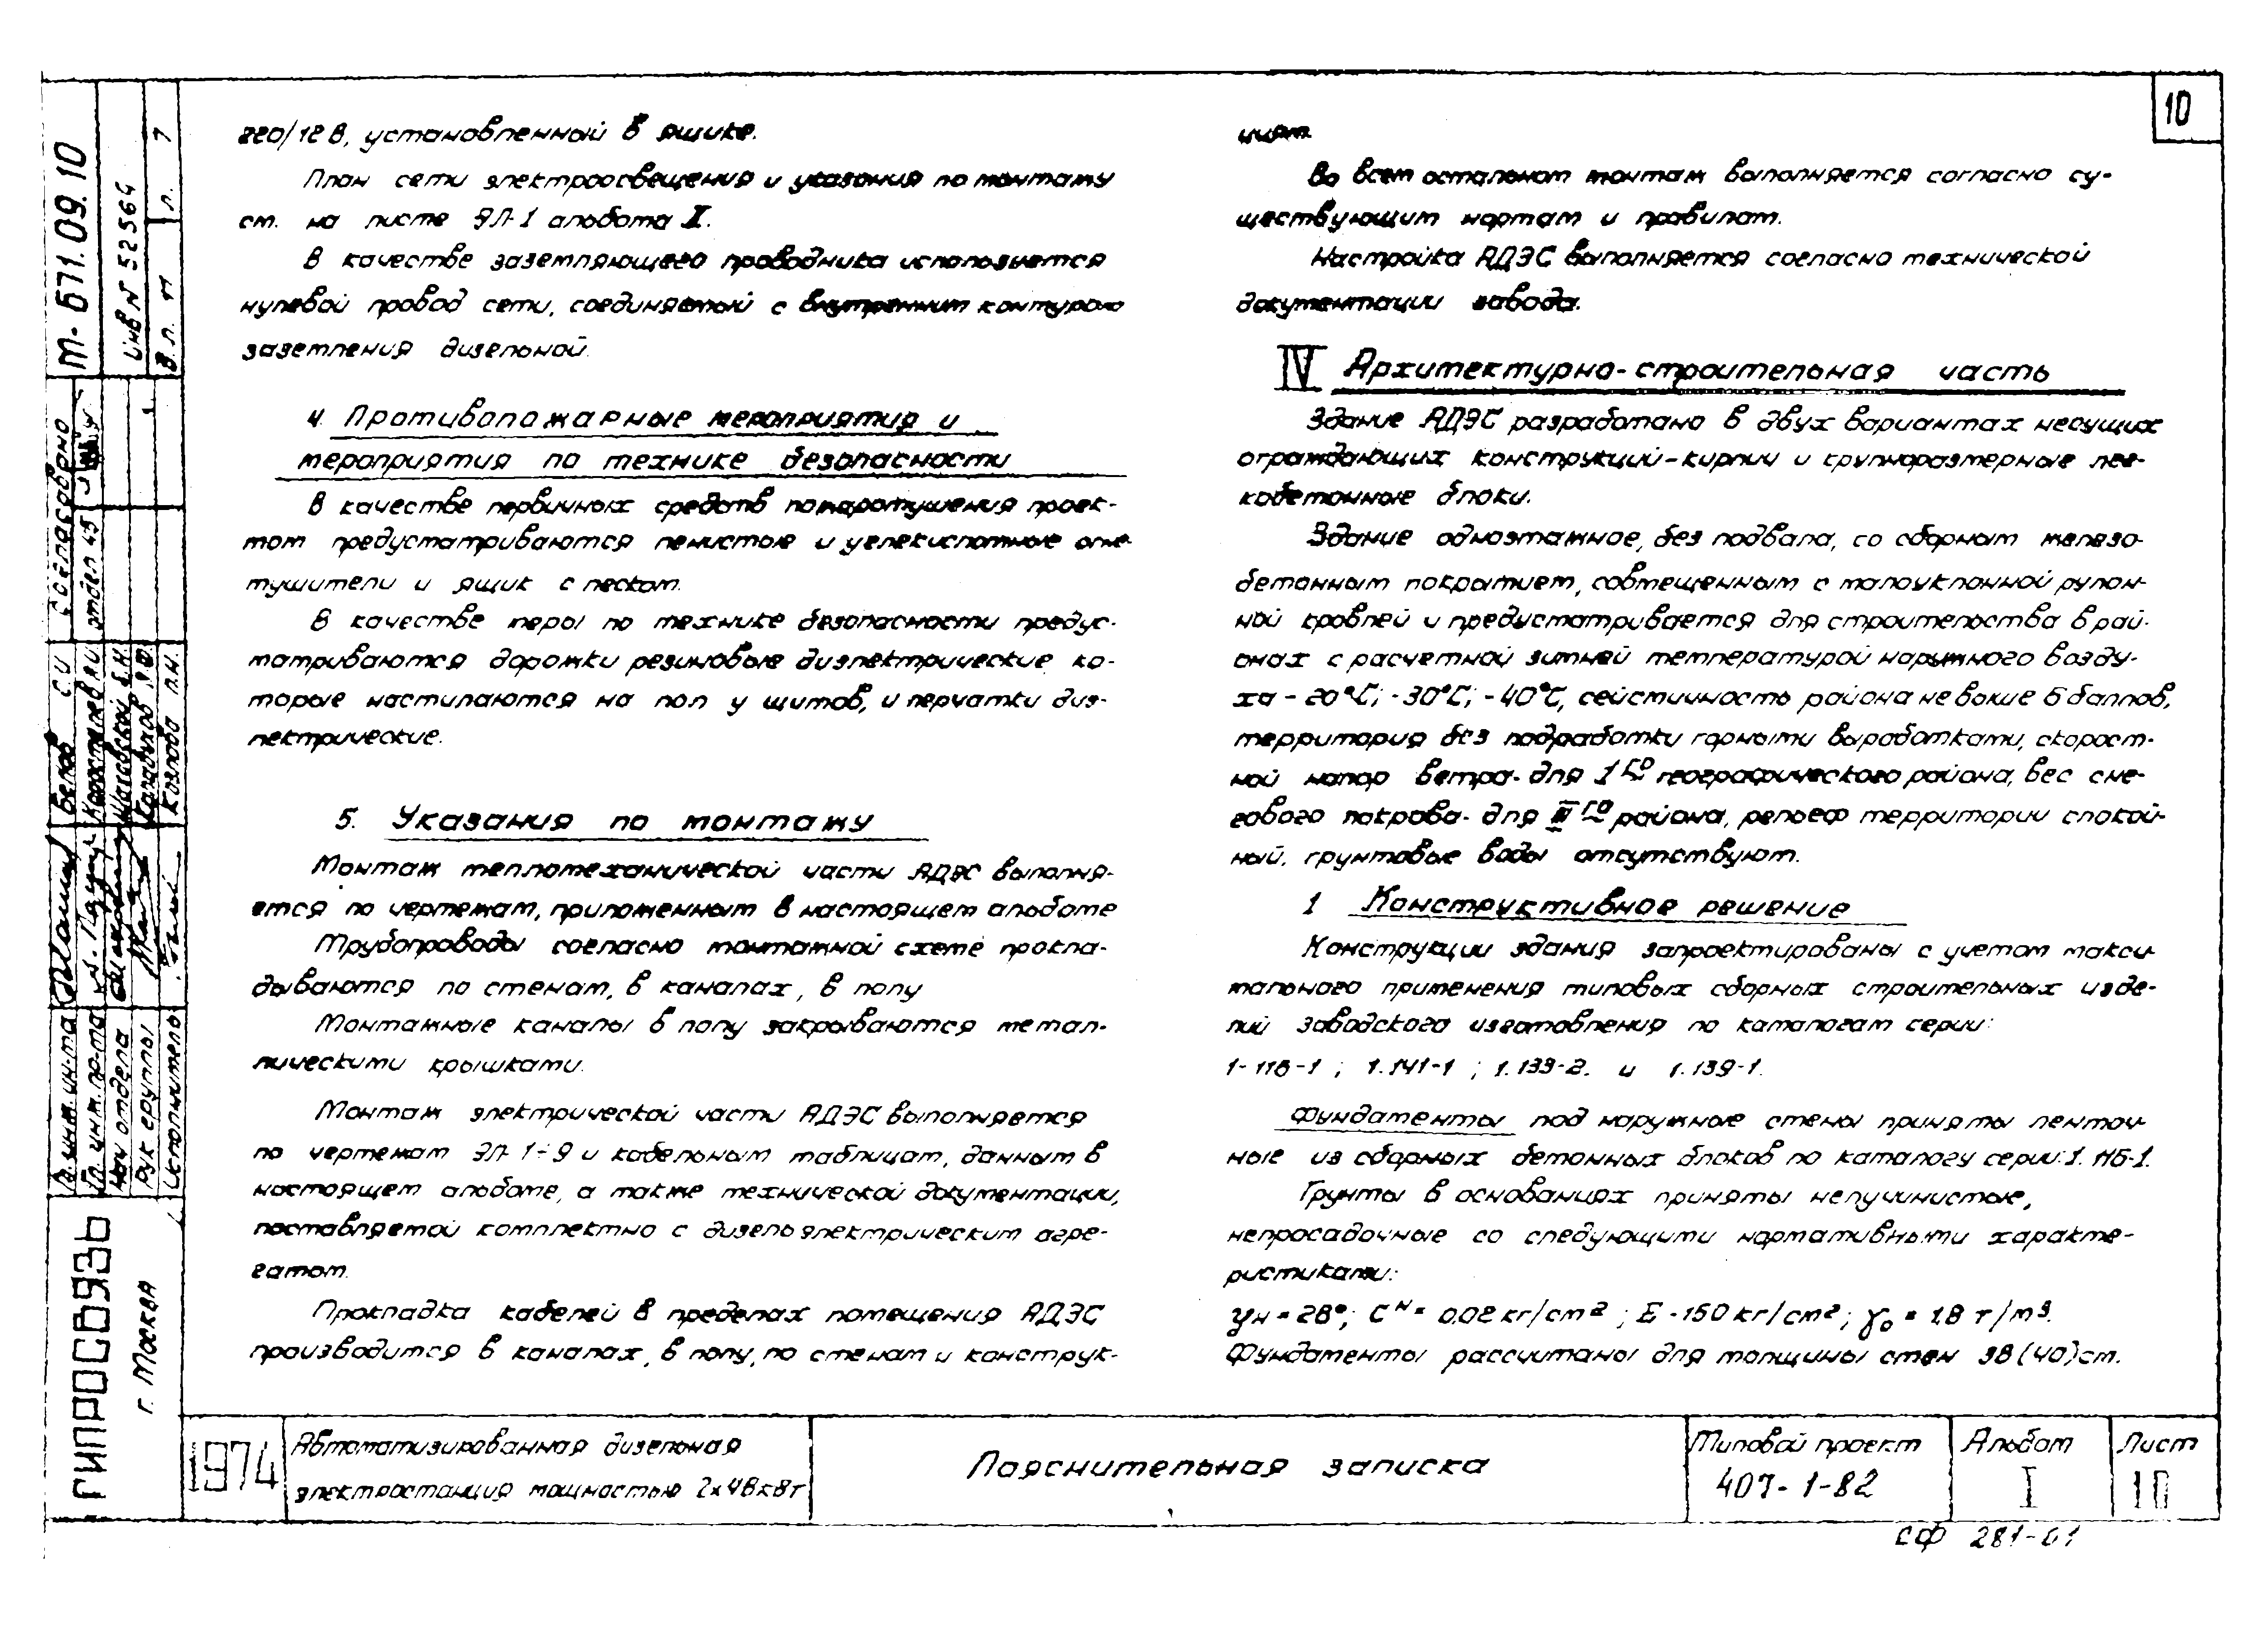 10
220/12 В, установленной в ящике.
План сети электроосвещения и указания по монтажу
см. на листе ЭЛ-1 альбома II.
В качестве заземляющего проводника используется
нулевой провод сети, соединяемый с внутренним контуром
заземления дизельной.
4. Противопожарные мероприятия и
мероприятия по технике безопасности
В качестве первичных средств пожаротушения проек-
том предусматриваются пенистые и углекислотные огне-
тушители и ящик с песком.
В качестве меры по технике безопасности предус-
матриваются дорожки резиновые диэлектрические ко-
торые настилаются на пол у щитов, и перчатки диэ-
лектрические.
5. Указания по монтажу
Монтаж теплотехнической части АДЭС выполня-
ется по чертежам, приложенным в настоящем альбоме
Трубопроводы согласно монтажной схеме прокла-
дываются по стенам, в каналах, в полу
Монтажные каналы в полу закрываются метал-
лическими крышками.
Монтаж электрической части АДЭС выполняется
по чертежам ЭЛ 1÷9 и кабельным таблицам, данным в
настоящем альбоме, а также технической документации,
поставляемой комплектно с дизельэлектрическим агре-
гатом.
Прокладка кабелей в пределах помещения АДЭС
производится в каналах, в полу, по стенам и конструк-
циям.
Во всем остальном монтаж выполняется согласно су-
ществующим нормам и правилам.
Настройка АДЭС выполняется согласно технической
документации завода.
IV Архитектурно-строительная часть
Здание АДЭС разработано в двух вариантах несущих
ограждающих конструкций-кирпич и крупноразмерные лег-
кобетонные блоки.
Здание одноэтажное, без подвала, со сборным железо-
бетонным покрытием, совмещенным с малоуклонной рулон-
ной кровлей и предусматривается для строительства в рай-
онах с расчетной зимней температурой наружного возду-
ха -20°С; -30°С; -40°С, сейсмичность района не выше 6 баллов,
территория без подработки горными выработками, скорост-
ной напор ветра- для 1го географического района, вес сне-
гового покрова- для IIIго района, рельеф территории спокой-
ный, грунтовые воды отсутствуют.
1 Конструктивное решение
Конструкции здания запроектированы с учетом макси-
мального применения типовых сборных строительных изде-
лий заводского изготовления по каталогам серии:
1-116-1; 1.141-1; 1.133-2. и 1.139-1.
Фундаменты под наружные стены приняты ленточ-
ные из сборных бетонных блоков по каталогу серии: 1.116-1.
Грунты в основаниях приняты непучинистые,
непросадочные со следующими нормативными характе-
ристиками:
φн = 28°; Сн = 0.02 кг/см2; Е - 150 кг/см2; γо = 1.8 т/м3.
Фундаменты рассчитаны для толщины стен 38 (40) см.
т- 671. 09. 10
инв N 52564
В. п. л. 7
согласовано
отдел 45
Гл. инж. ин-та Белов С.И
Гл. инж. пр-та
Нач отдела
Рук группы
Исполнитель Козлова Л.Н.
ГИПРОСВЯЗЬ
г. Москва
1974
Автоматизированная дизельная
электростанция мощностью 2х48 кВт
Пояснительная записка
Типовой проект
407-1-82
Альбом
I
Лист
10
СФ 281-01